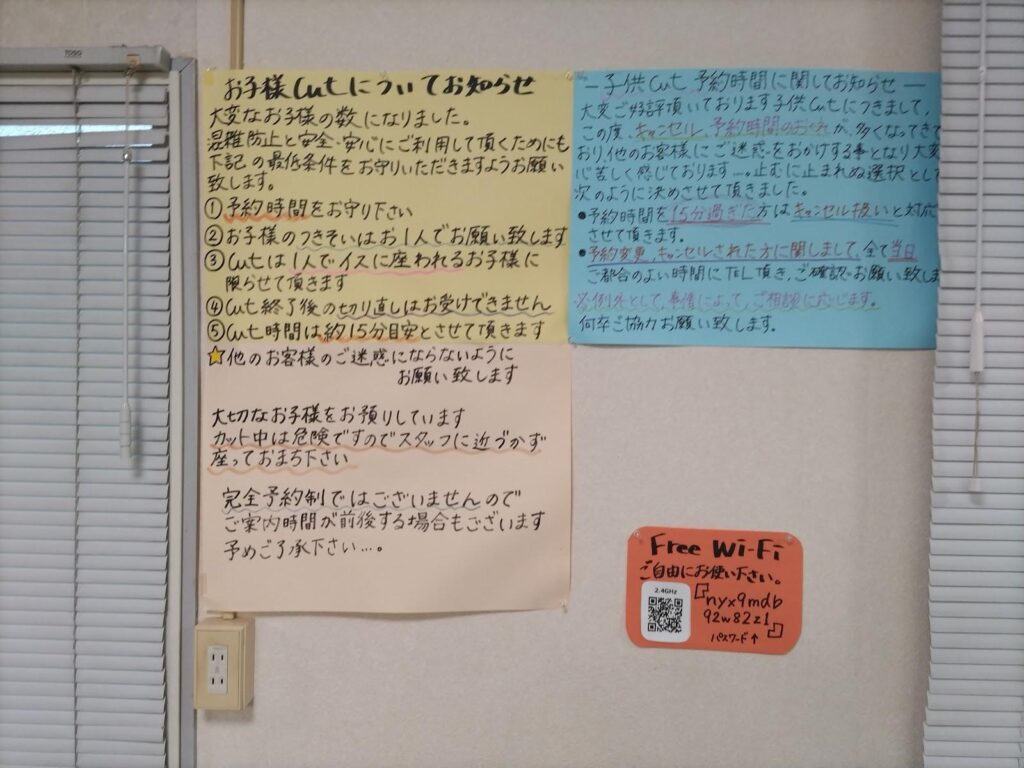 TOSO
お子様Cutについてお知らせ
大変なお子様の数になりました。
混雑防止と安全・安心にご利用して頂くためにも
下記の最低条件をお守りいただきますようお願い
致します。
①予約時間をお守り下さい
②お子様のつきそいはお1人でお願い致します
③Cutは1人でイスに座われるお子様に
限らせて頂きます
④Cut終了後の切り直しはお受けできません
⑤Cut時間は約15分目安とさせて頂きます
☆他のお客様のご迷惑にならないように
お願い致します
大切なお子様をお預りしています
カット中は危険ですのでスタッフに近づかず
座っておまち下さい
完全予約制ではございませんので
ご案内時間が前後する場合もございます
予めご了承下さい…。
―子供Cut 予約時間に関してお知らせ―
大変ご好評頂いております子供Cutにつきまして、
この度、キャンセル、予約時間のおくれが、多くなってきて
おり、他のお客様にご迷惑をおかけする事となり大変
心苦しく感じております…。止むに止まれぬ選択として
次のように決めさせて頂きました。
●予約時間を15分過ぎた方はキャンセル扱いと対応
させて頂きます。
●予約変更、キャンセルされた方に関しまして、全て当日
ご都合のよい時間にTEL頂き、ご確認お願い致しま
例外として、事情によって、ご相談に応じます。
何卒ご協力お願い致します。
Free Wi-Fi
ご自由にお使い下さい。
2.4GHz
『nyx9mdb
92w82z1』
パスワード↑